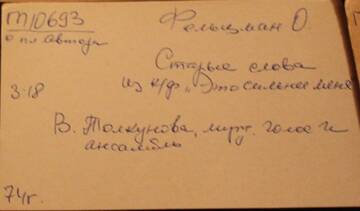 М10693
Фельцман О.
о пл автора
Старые слова
3-18
из к/ф "Это сильнее меня
В. Толкунова, муж. голос и
ансамбль
74г.